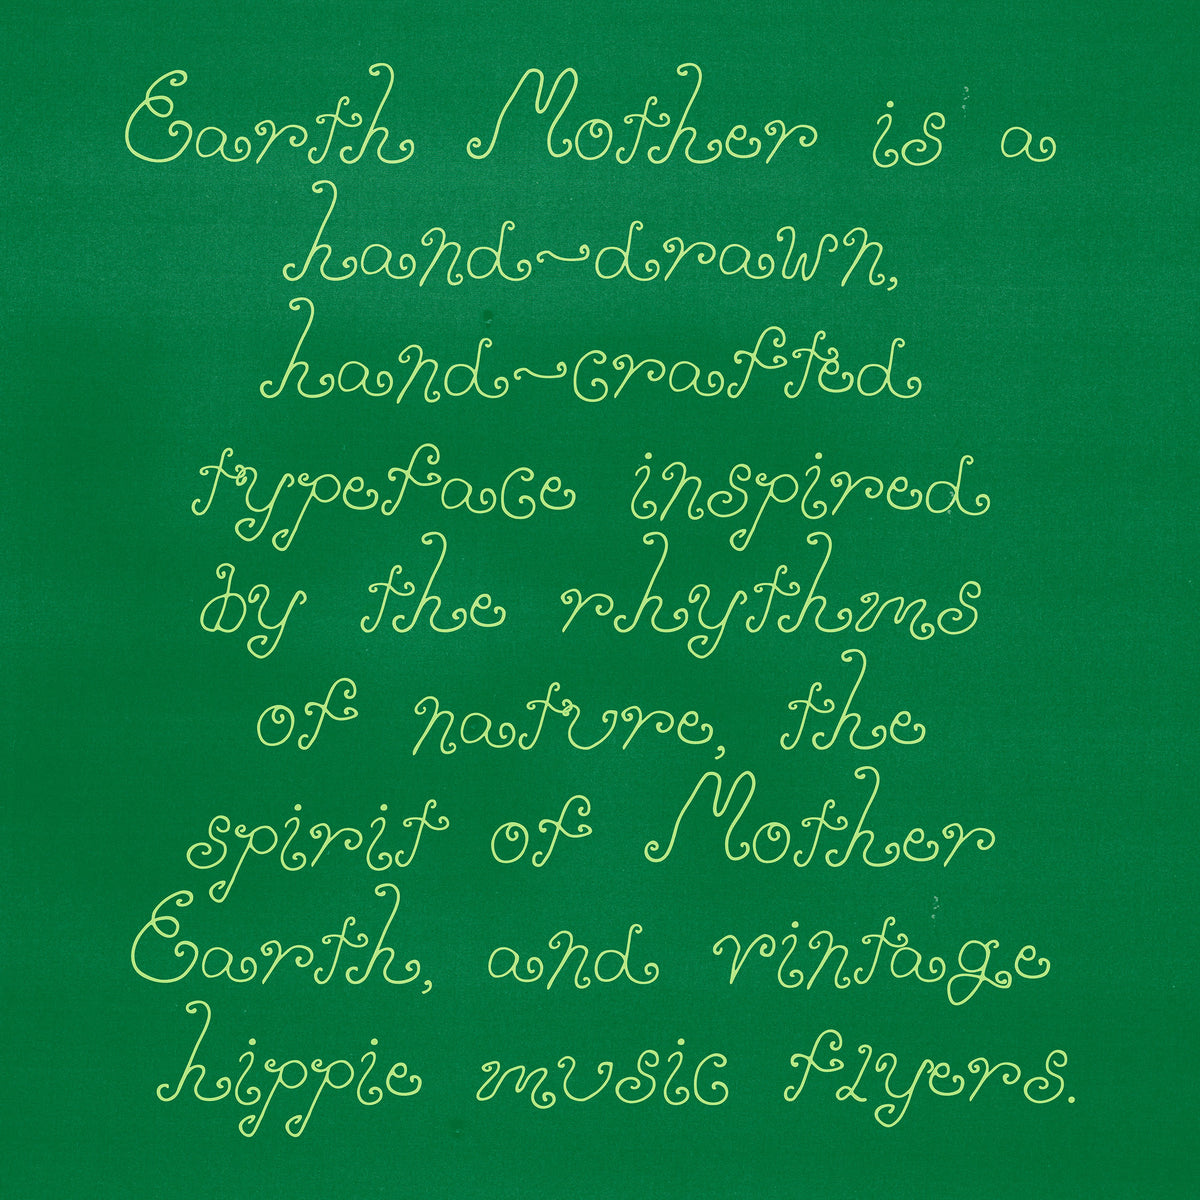 Earth Mother is a
hand-drawn,
hand-crafted
typeface inspired
by the rhythms
of nature, the
spirit of Mother
Earth, and vintage
hippie music flyers.